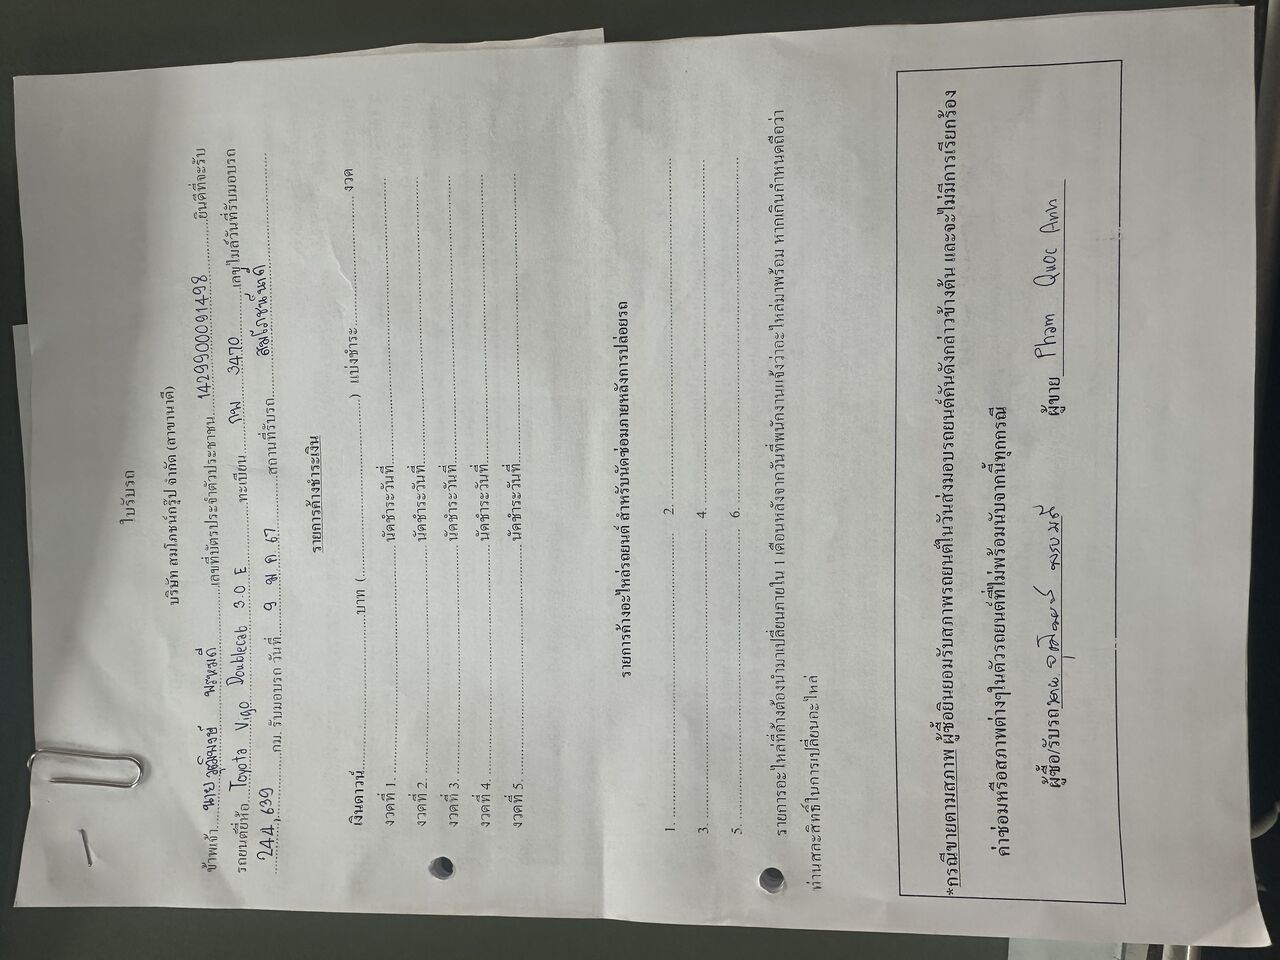 ใบรับรถ
บริษัท สมโภชน์กรุ๊ป จำกัด (สาขานาดี)
ข้าพเจ้า.....นาย วุฒิพงษ์ พรหมดี.....เลขที่บัตรประจำตัวประชาชน.....1429900091498.....ยินดีที่จะรับ
รถยนต์ยี่ห้อ.....Toyota Vigo Doublecab 3.0 E.....ทะเบียน.....กพ 3470.....เลขไมล์วันที่รับมอบรถ
.....244,639.....กม. รับมอบรถ วันที่.....9 ม.ค. 67.....สถานที่รับรถ.....สมโภชน์นาดี.....
รายการค้างชำระเงิน
เงินดาวน์..........บาท (..........) แบ่งชำระ..........งวด
งวดที่ 1..........นัดชำระวันที่..........
งวดที่ 2..........นัดชำระวันที่..........
งวดที่ 3..........นัดชำระวันที่..........
งวดที่ 4..........นัดชำระวันที่..........
งวดที่ 5..........นัดชำระวันที่..........
รายการค้างอะไหล่รถยนต์ สำหรับนัดซ่อมภายหลังการปล่อยรถ
1...........2...........
3...........4...........
5...........6...........
รายการอะไหล่ที่ค้างต้องนำมาเปลี่ยนภายใน 1 เดือนหลังจากวันที่พนักงานแจ้งว่าอะไหล่มาพร้อม หากเกินกำหนดถือว่า
ท่านสละสิทธิ์ในการเปลี่ยนอะไหล่
*กรณีขายตามสภาพ ผู้ซื้อยินยอมรับสภาพรถยนต์ในวันส่งมอบรถยนต์คันดังกล่าวข้างต้น และจะไม่มีการเรียกร้อง
ค่าซ่อมหรือสภาพต่างๆในตัวรถยนต์ที่ไม่พร้อมนับจากนี้ทุกกรณี
ผู้ซื้อ/รับรถ ผู้ขาย Pham Quoc Anh